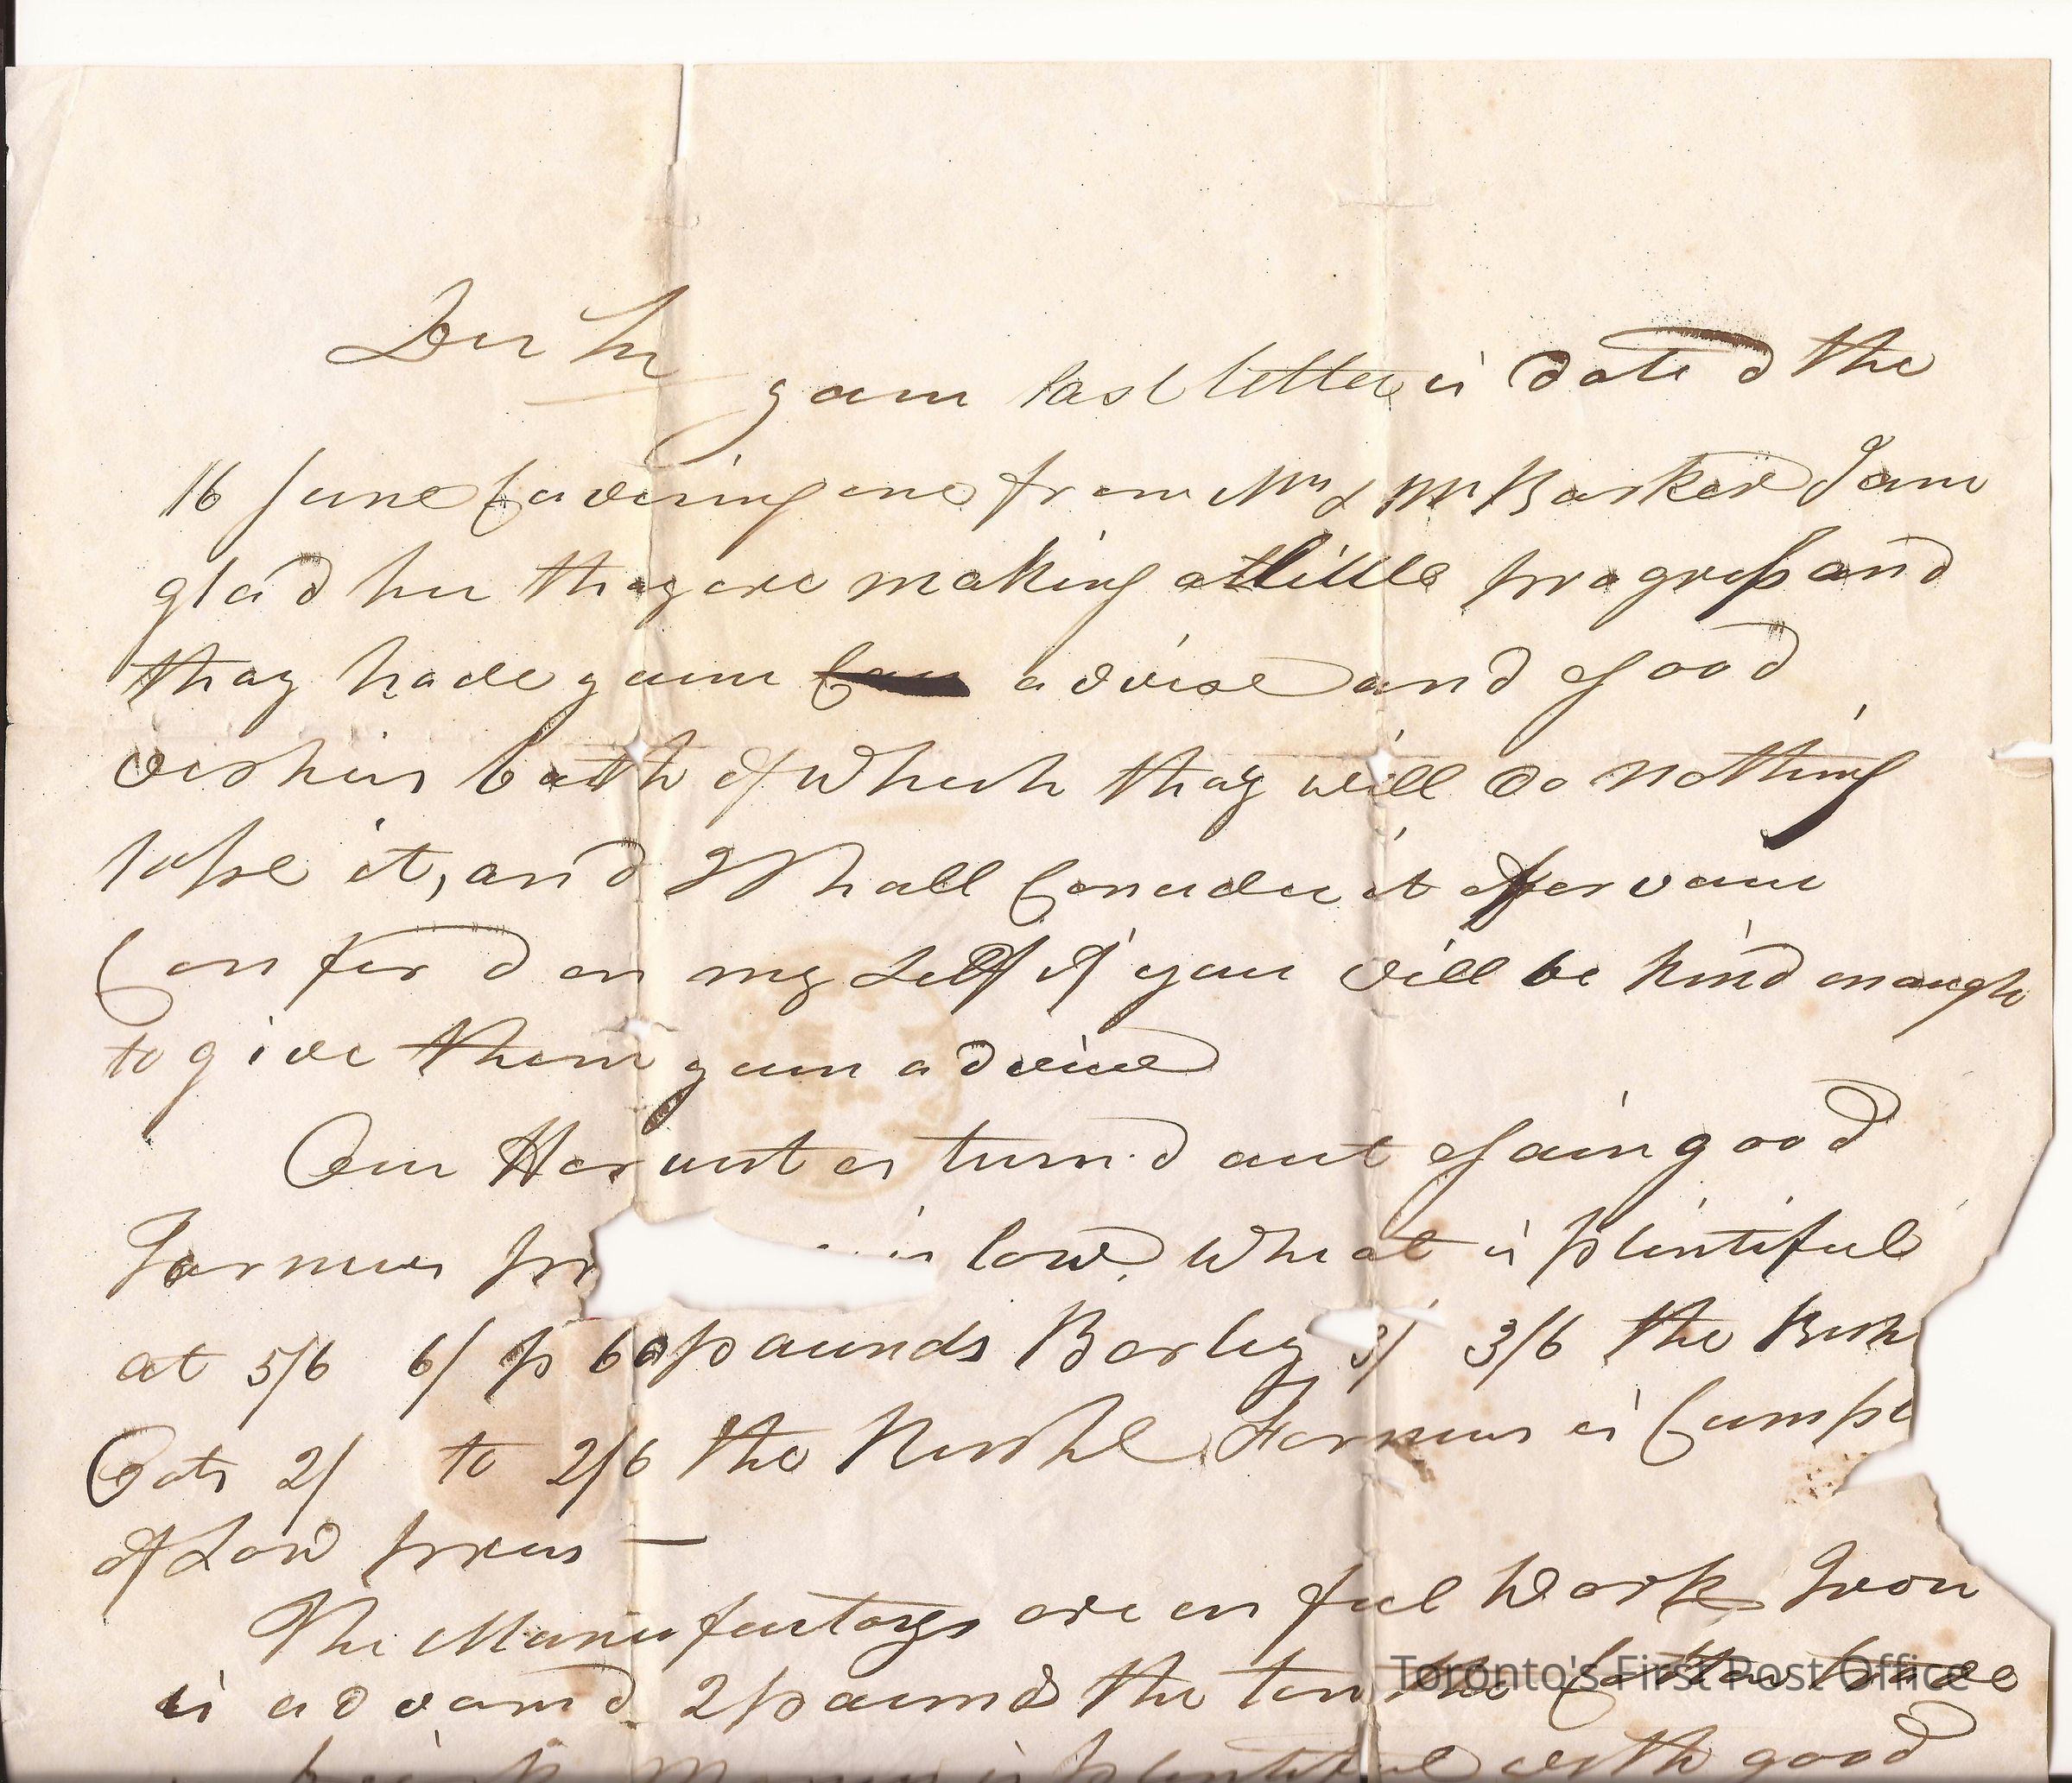 Dear Sir
your last letter is dated the
16 June Covering one from Mr & Mrs Barker I am
glad hear thay are making a little progress and
thay have your advise and good
wishes bath of which thay will do nothing
to lose it, and I Shall Consider it a favour
Conferd on my Self if you will be kind enough
to give them your advice
Our Harvest is turn.d out again good
Farmers pr is low. Wheat is plentiful
at 5/6 6/ p 60 pounds Barley 3/ 3/6 the Bush
Oats 2/ to 2/6 the Bushl Farmers is Compl
of Low prices —
The Manufactorys are in ful Work Iron
is advanc'd 2 pounds the ton the Cotton trade
is brisk Money is plentiful with good
Toronto's First Post Office